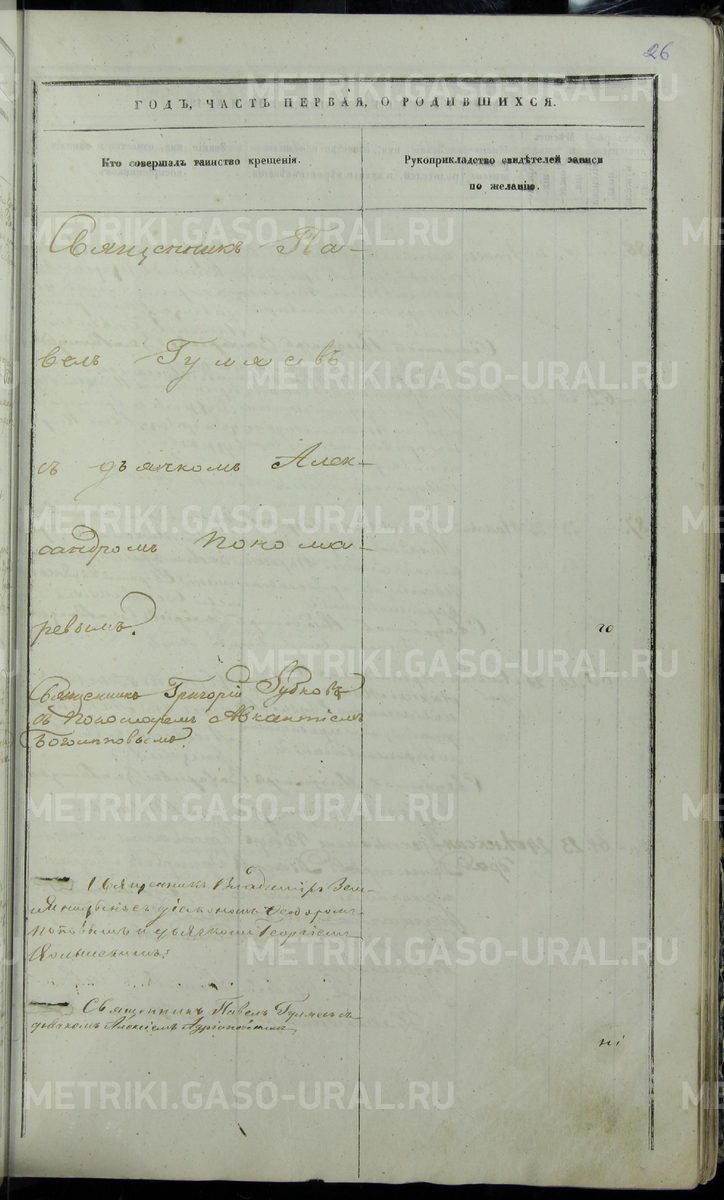 26
ГОДЪ, ЧАСТЬ ПЕРВАЯ, О РОДИВШИХСЯ.
Кто совершалъ таинство крещенія.
Рукоприкладство свидѣтелей записи
по желанію.
Священникъ Па-
велъ Гуляевъ
съ дьячкомъ Алек-
сандромъ Понома-
ревымъ.
го
Священникъ Григорій Зубковъ
съ Пономаремъ
Священникъ Владиміръ Зем-
съ діакономъ Ѳедоромъ
Поповымъ и дьячкомъ Георгіемъ
Священникъ Павелъ Гуляевъ съ
дьячкомъ Алексіемъ
ні
METRIKI.GASO-URAL.RU